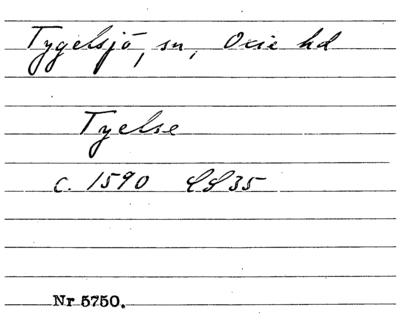 Tygelsjö, sn, Oxie hd
Tyelse
c. 1590 LL35
Nr 5750.